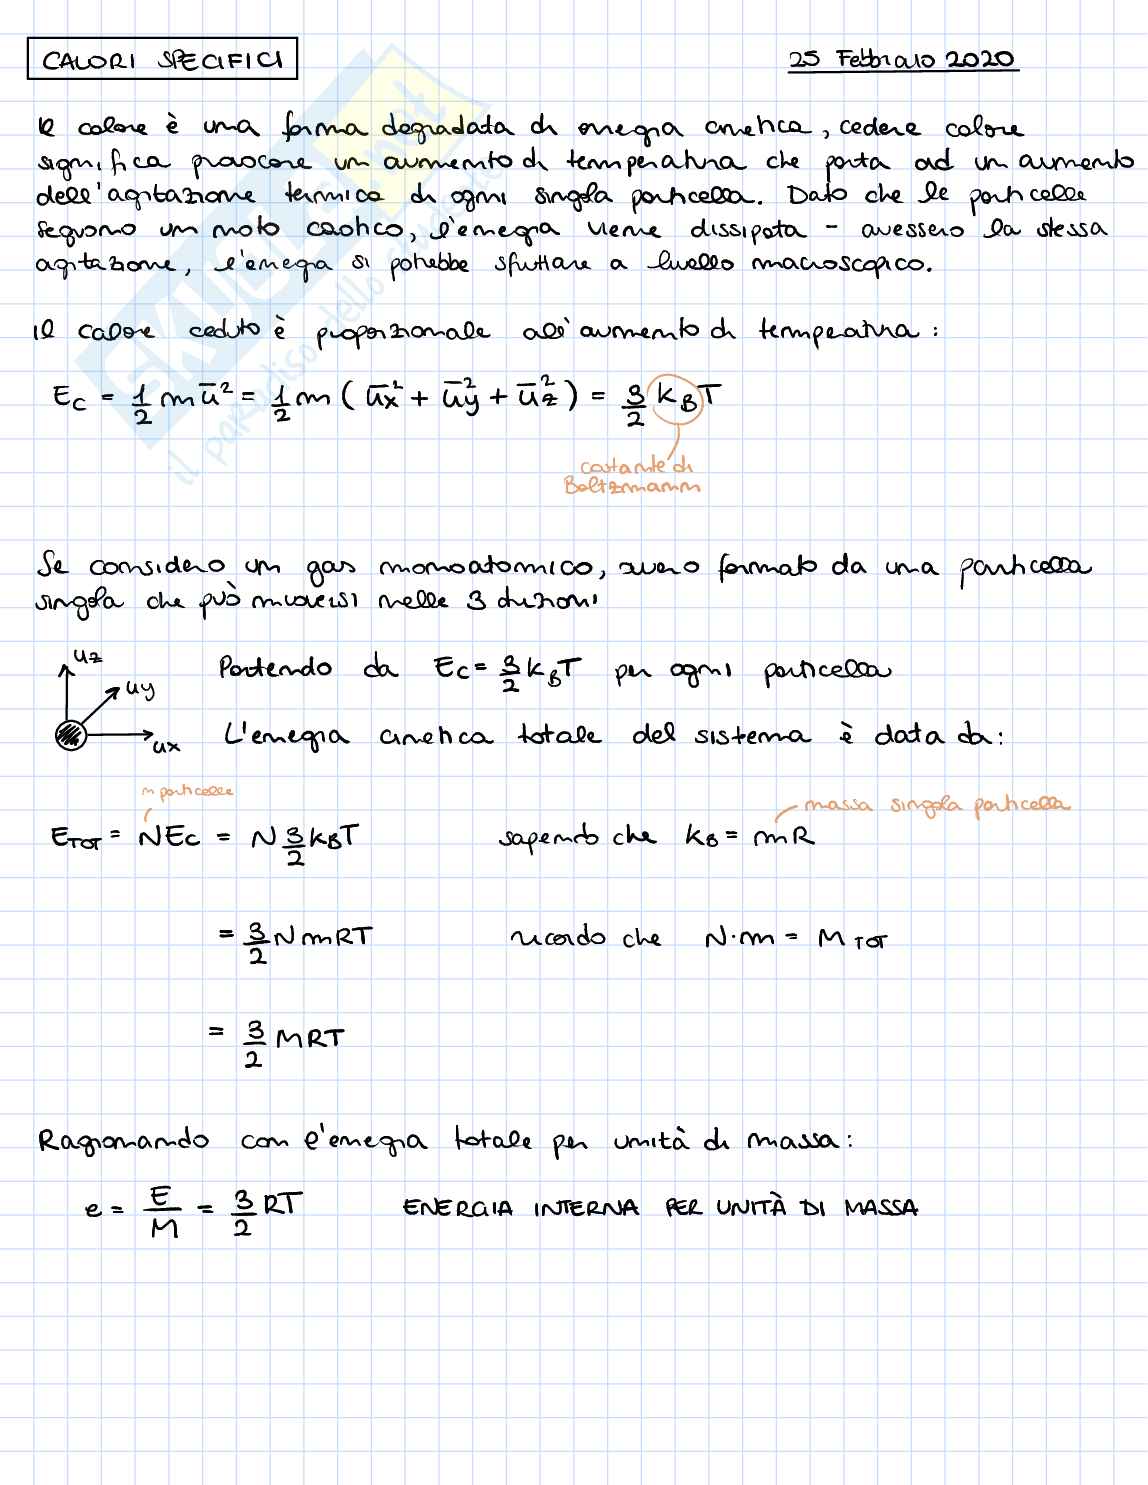 CALORI SPECIFICI
25 Febbraio 2020
Il calore è una forma degradata di energia cinetica, cedere calore
significa provocare un aumento di temperatura che porta ad un aumento
dell'agitazione termica di ogni singola particella. Dato che le particelle
seguono un moto caotico, l'energia viene dissipata - avessero la stessa
agitazione, l'energia si potrebbe sfruttare a livello macroscopico.
Il calore ceduto è proporzionale all'aumento di temperatura:
Ec = 1/2 m ū² = 1/2 m ( ūx² + ūy² + ūz² ) = 3/2 kBT
costante di
Boltzmann
Se considero un gas monoatomico, ovvero formato da una particella
singola che può muoversi nelle 3 direzioni
uz
uy
ux
Partendo da Ec = 3/2 kBT per ogni particella
L'energia cinetica totale del sistema è data da:
n particelle
massa singola particella
ETOT = NEc = N 3/2 kBT sapendo che kB = mR
= 3/2 NmRT ricordo che N·m = MTOT
= 3/2 MRT
Ragionando con l'energia totale per unità di massa:
e = E/M = 3/2 RT ENERGIA INTERNA PER UNITÀ DI MASSA
SKUOLA.net
il paradiso dello studente